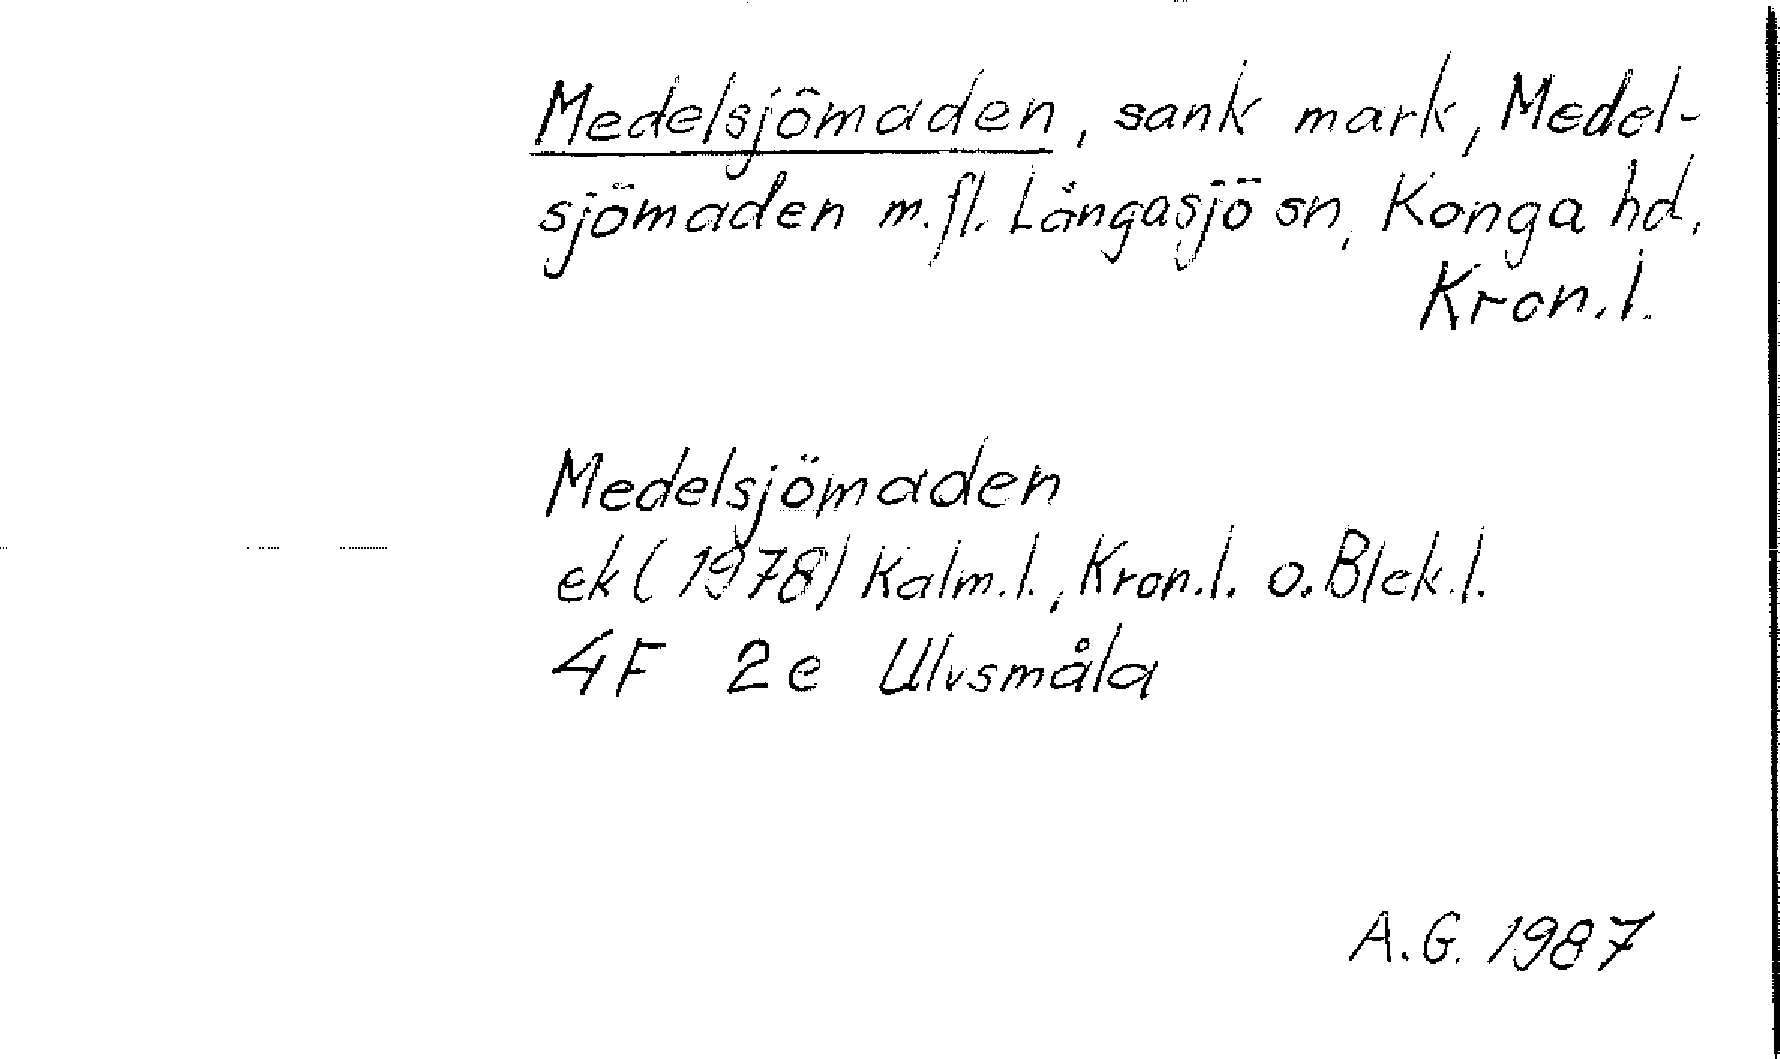 Medelsjömaden, sank mark, Medel-
sjömaden m.fl. Långasjö sn, Konga hd,
Kron.l.
Medelsjömaden
ek (1978) Kalm.l., Kron.l. o. Blek.l.
4F 2e Ulvsmåla
A.G. 1987